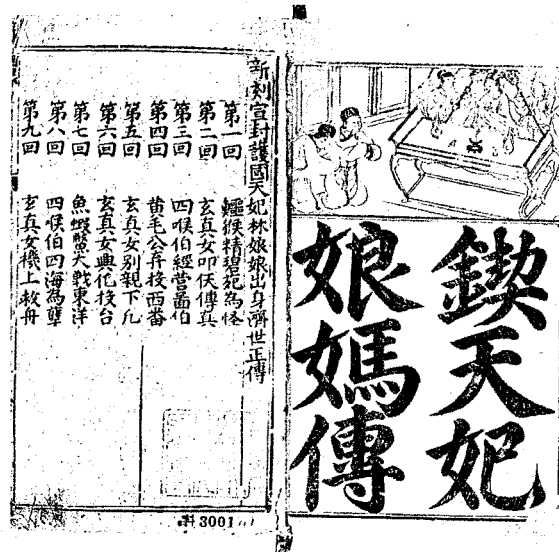 鍥天妃
娘媽傳
新刻宣封護國天妃林娘娘出身濟世正傳
第一回 猴精碧苑為怪
第二回 玄真女叩仸傳真
第三回 四喉伯經營啚伯
第四回 黃毛公弃投西番
第五回 玄真女別親下凡
第六回 玄真女興化投台
第七回 魚蝦蟹大戰東洋
第八回 四喉伯四海為孽
第九回 玄真女機上救舟
3001